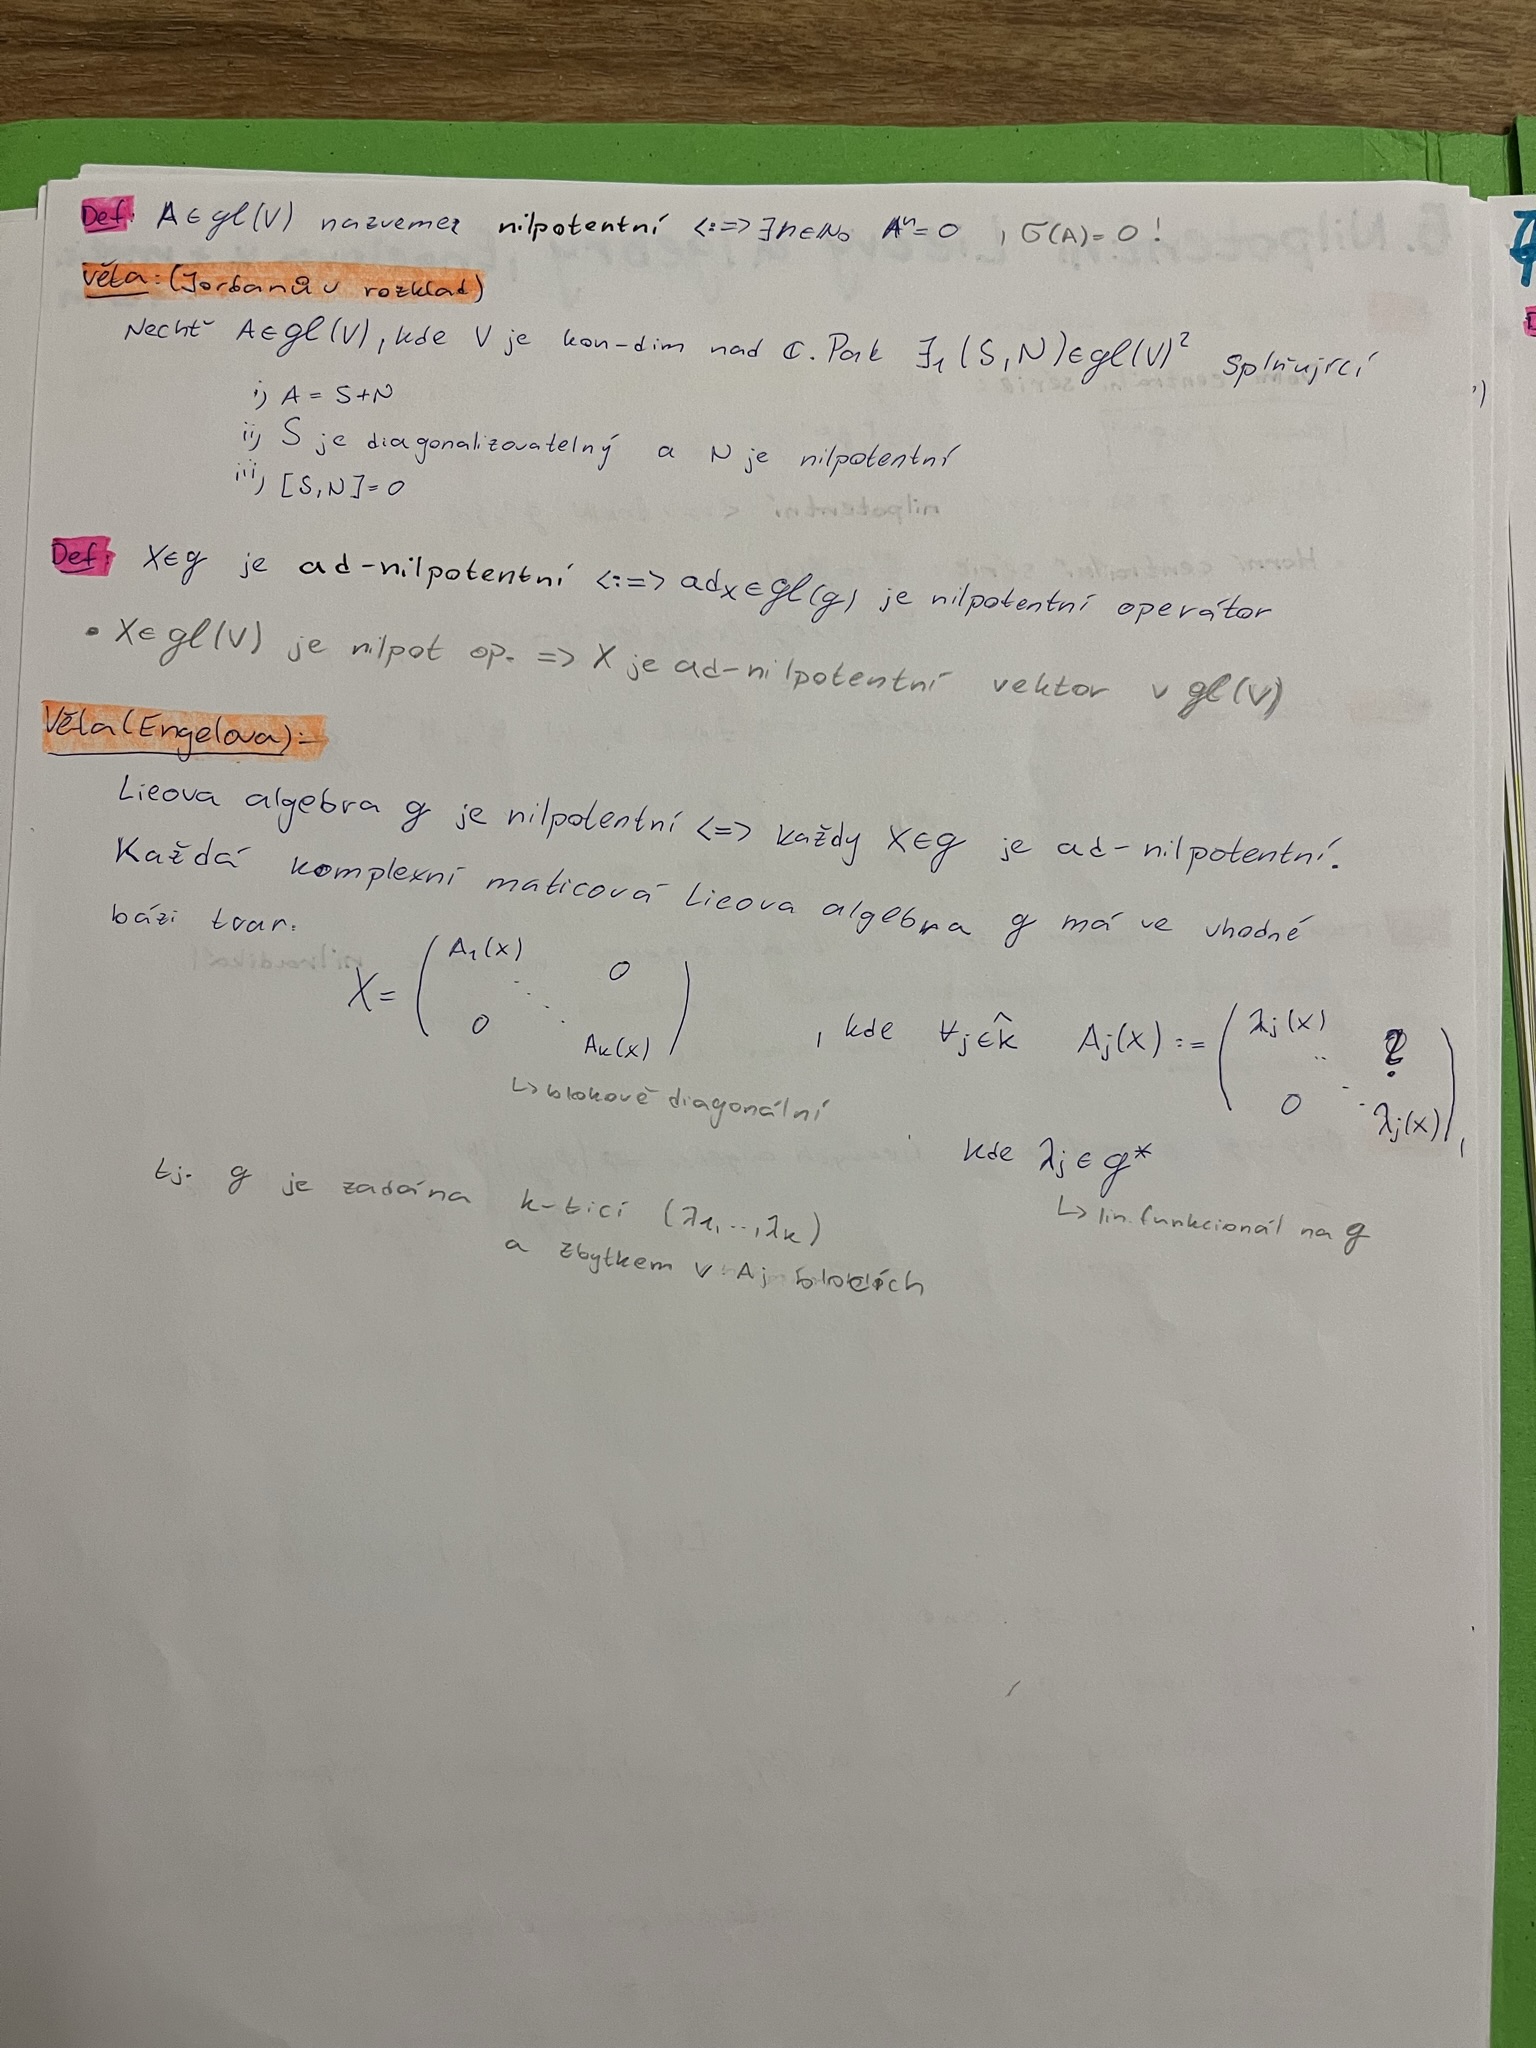 Def: A∈gl(V) nazvemez nilpotentní <:=> ∃n∈N₀ Aⁿ=0 , σ(A)=0 !
Věta: (Jordanův rozklad)
Nechť A∈gl(V), kde V je kon-dim nad ℂ. Pak ∃₁(S,N)∈gl(V)² splňující
i) A = S+N
ii) S je diagonalizovatelný a N je nilpotentní
iii) [S,N]=0
Def: X∈g je ad-nilpotentní <:=> adₓ∈gl(g) je nilpotentní operátor
• X∈gl(V) je nilpot op. => X je ad-nilpotentní vektor v gl(V)
Věta(Engelova):
Lieova algebra g je nilpotentní <=> každy X∈g je ad-nilpotentní.
Každá komplexní maticová Lieova algebra g má ve vhodné
bázi tvar:
X= ( A₁(x) ⋱ 0 0 Aₖ(x) ) , kde ∀j∈k̂ Aj(x) := ( λj(x) ⋱ ? 0 λj(x) ),
↳ blokově diagonální
kde λj ∈ g*
↳ lin. funkcionál na g
tj. g je zadána k-ticí (λ₁,...,λₖ)
a zbytkem v Aj blocích